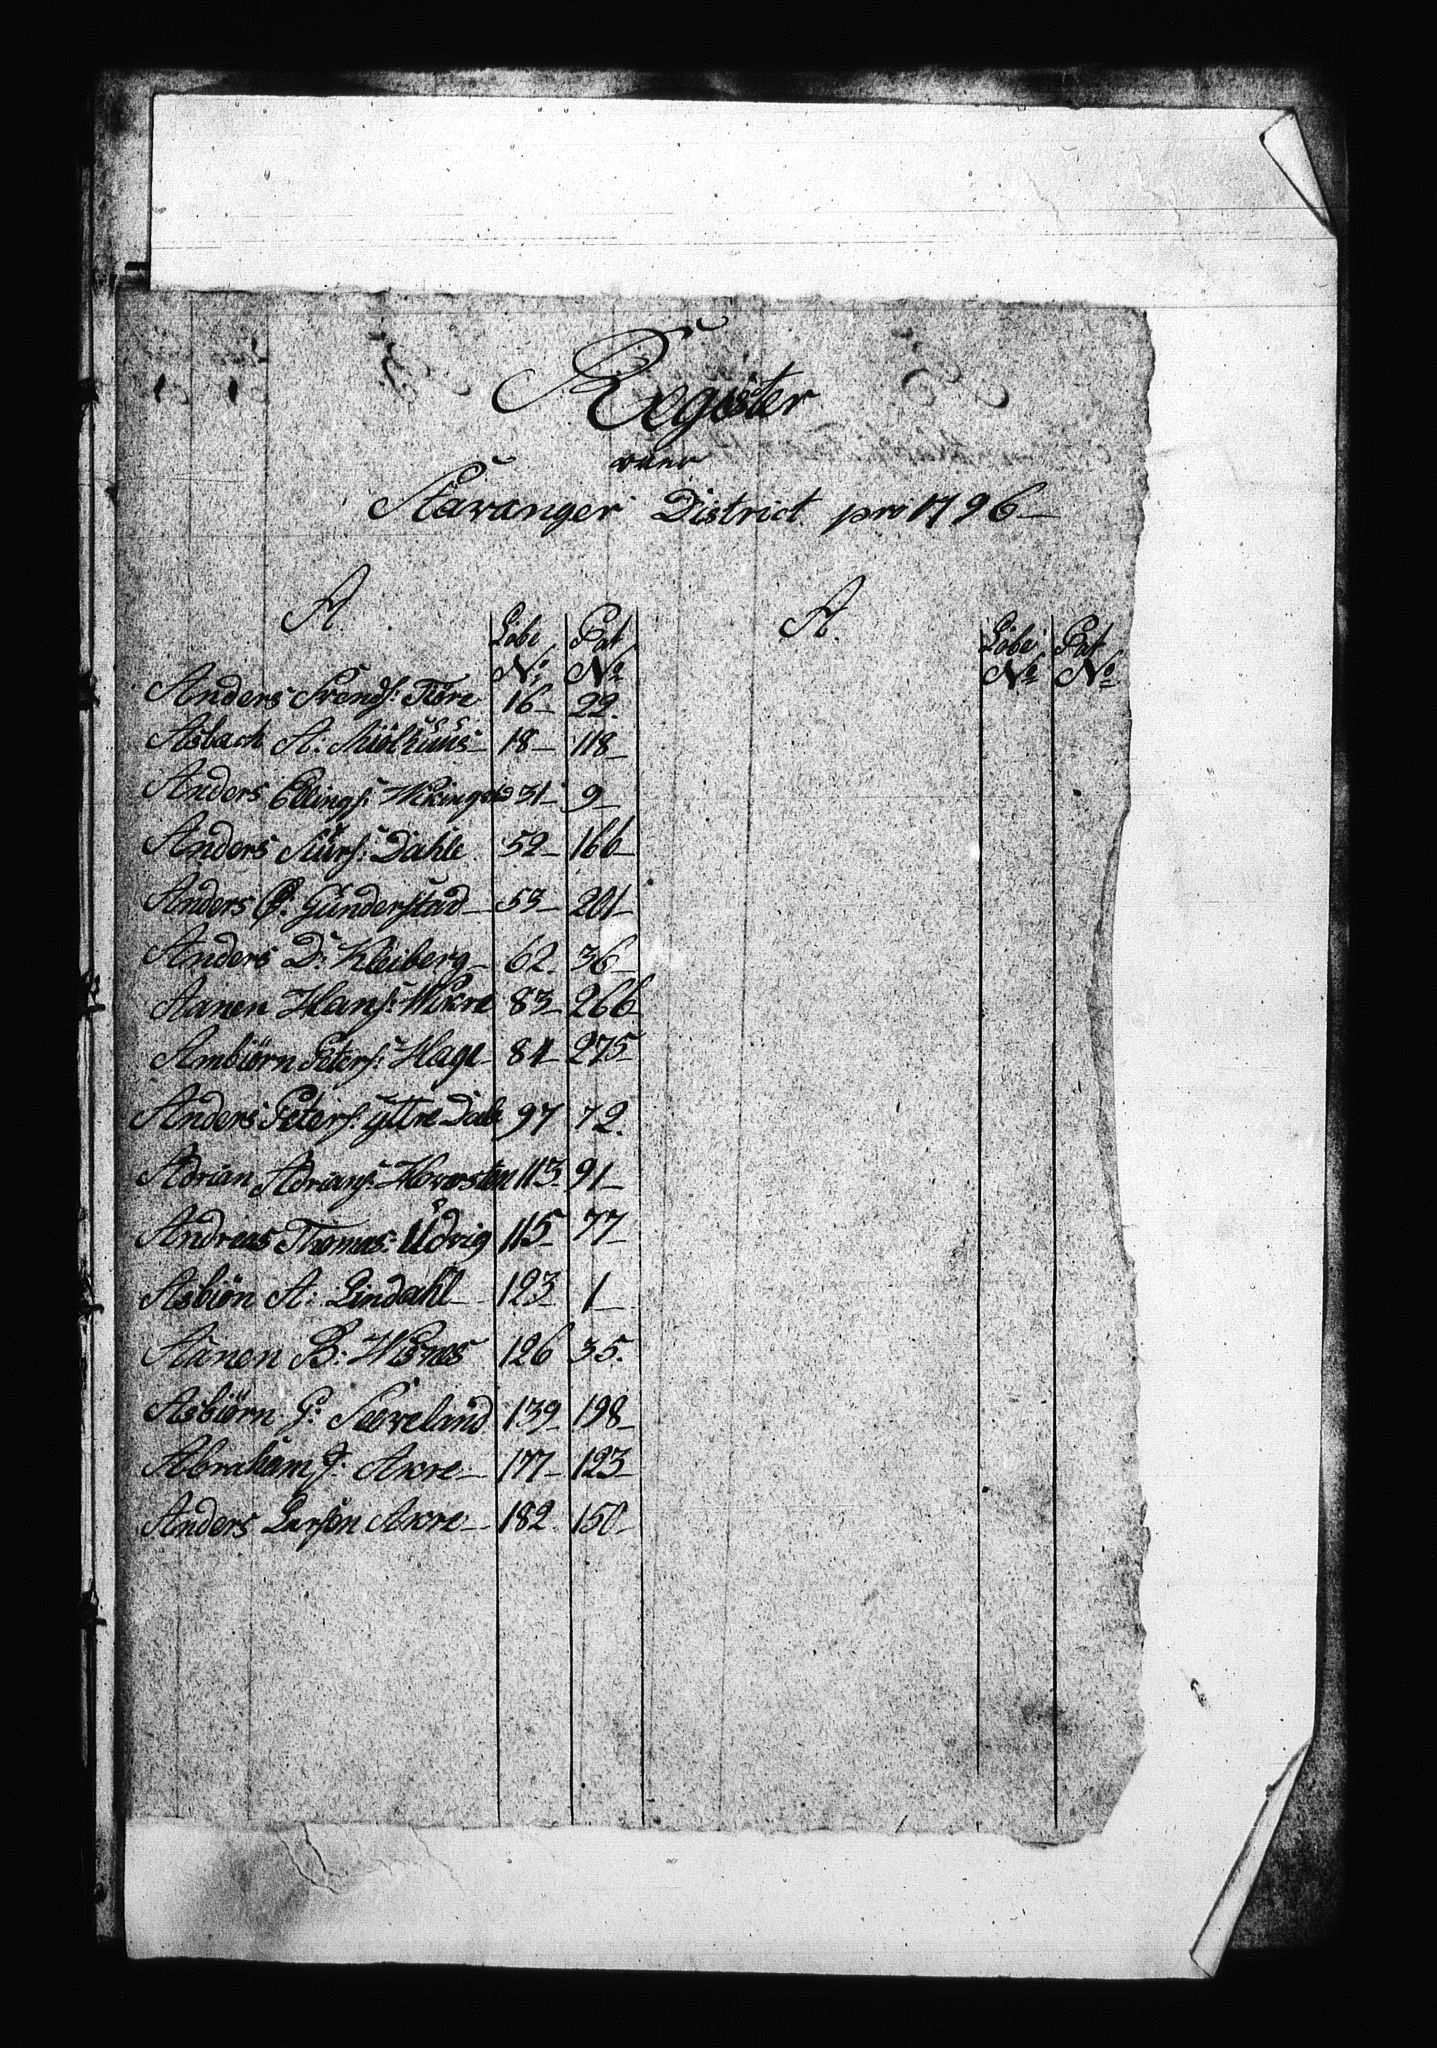 Register
over
Stavanger District pro 1796 —
A.
Løbe No.
Pat No.
A.
Løbe No.
Pat No.
Anders Svends: Tiøre 16 — 22.
Asbach A: Miølhuus — 18 — 118 —
Anders Ellings: Wikingstad 31 — 9 —
Anders Siurs: Dahle 52 — 166 —
Anders O. Gunderstad — 53 — 201 —
Anders D: Kleiberg — 62. 36 —
Aanen Hans: Wikre 83 — 266 —
Ambiørn Peters: Hage — 84 — 275 —
Anders Peters: Yttre Dale 97 72.
Adrian Adrians: Hovesten 113. 91 —
Andreas Thomas: Udvig 115 77 —
Asbiøn A: Lindahl — 123 1 —
Aanen B: Wisnes 126 35.
Asbiørn G: Seeveland 139 — 198 —
Abraham J: Akre — 177 — 123 —
Anders Larsøn Akre — 182. 150 —